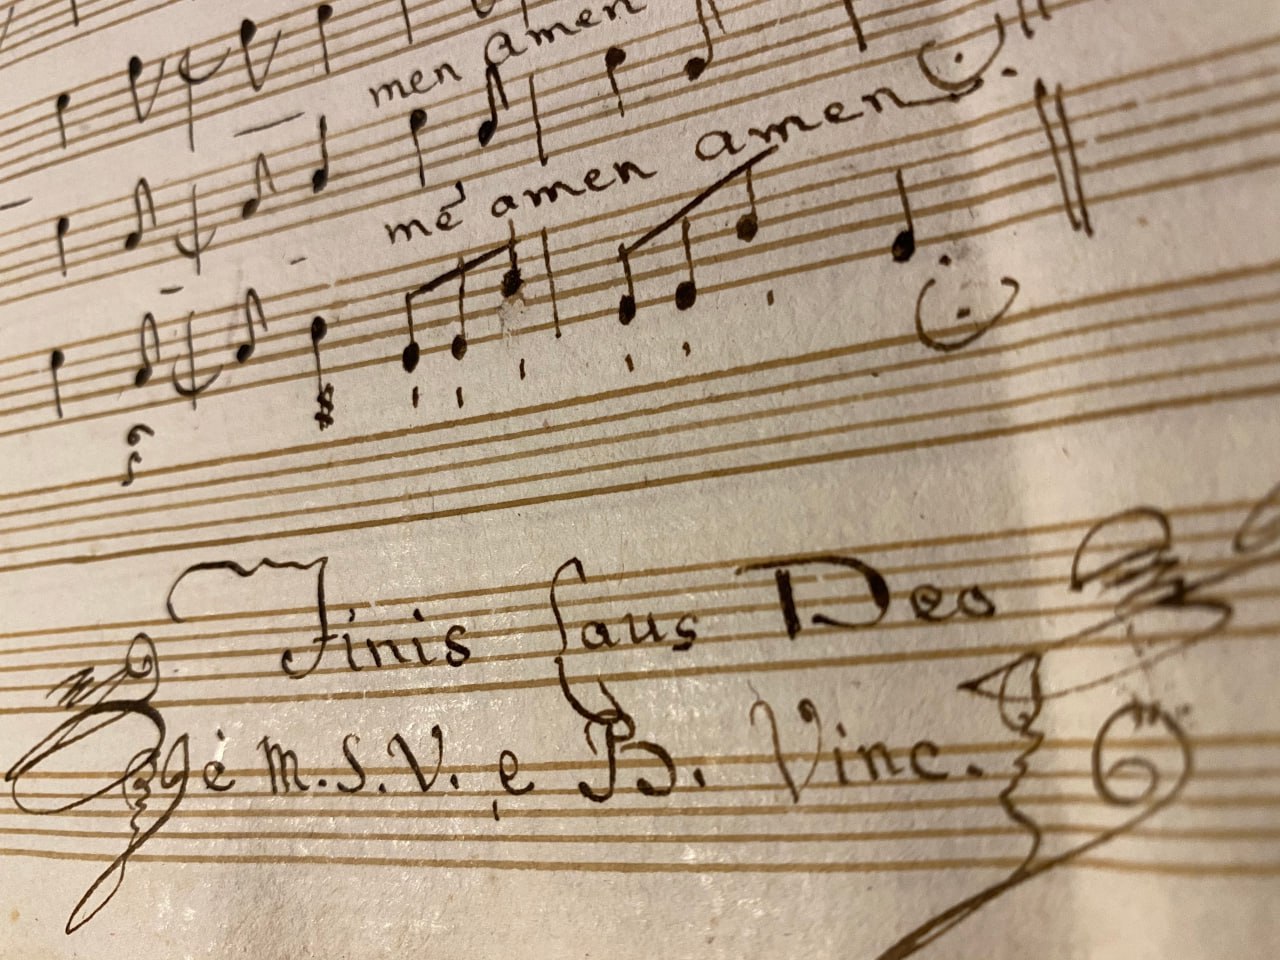 men amen
me amen amen
Finis Laus Deo
è M.S.V. e B. Vinc.